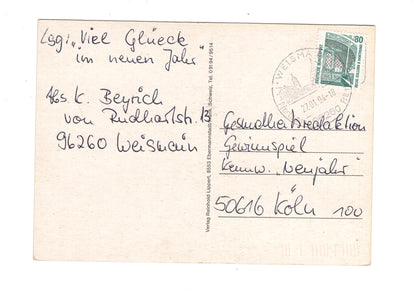 Lsg: "Viel Glück
im neuen Jahr"
Abs K. Beyrich
von Rudhartstr. 13
96260 Weismain
Verlag Reinhold Lippert, 8553 Ebermannstadt
Schweiz, Tel. 09194/9514
80
DEUTSCHE BUNDESPOST
WEISMAIN
27.01.94-18
Gesundheitsredaktion
Gewinnspiel
Kennw. "Neujahr"
50616 Köln 100